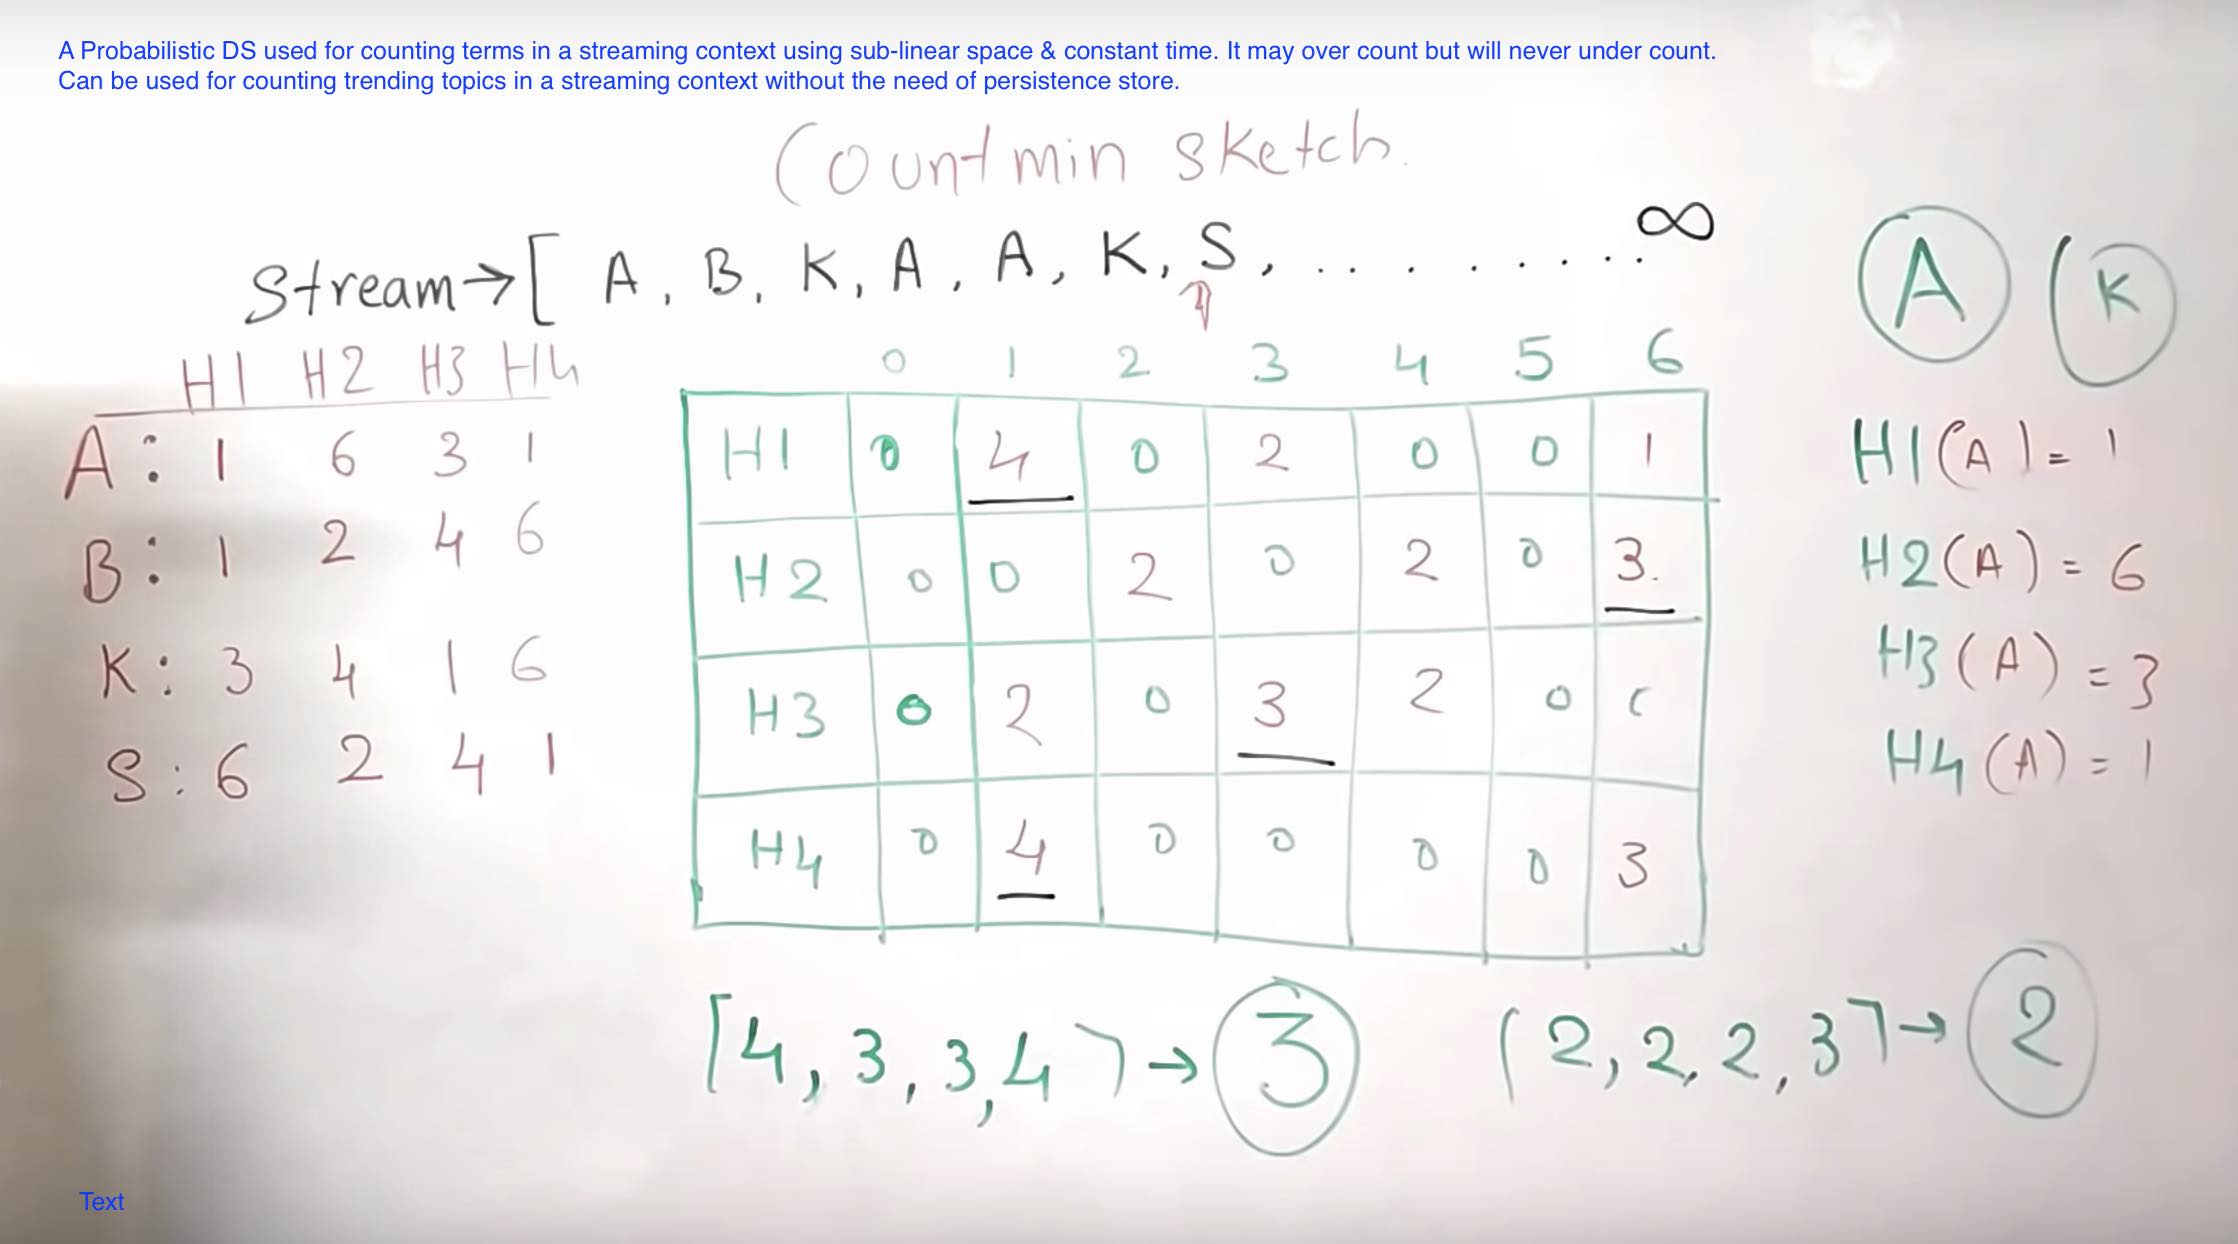 A Probabilistic DS used for counting terms in a streaming context using sub-linear space & constant time. It may over count but will never under count.
Can be used for counting trending topics in a streaming context without the need of persistence store.
Count min sketch.
Stream→[ A, B, K, A, A, K, S, . . . . . . . . . ∞
A K
H1 H2 H3 H4
A: 1 6 3 1
B: 1 2 4 6
K: 3 4 1 6
S: 6 2 4 1
0 1 2 3 4 5 6
H1 0 4 0 2 0 0 1
H2 0 0 2 0 2 0 3.
H3 0 2 0 3 2 0
H4 0 4 0 0 0 0 3
H1(A) = 1
H2(A) = 6
H3(A) = 3
H4(A) = 1
[4, 3, 3, 4] → 3
[2, 2, 2, 3] → 2
Text